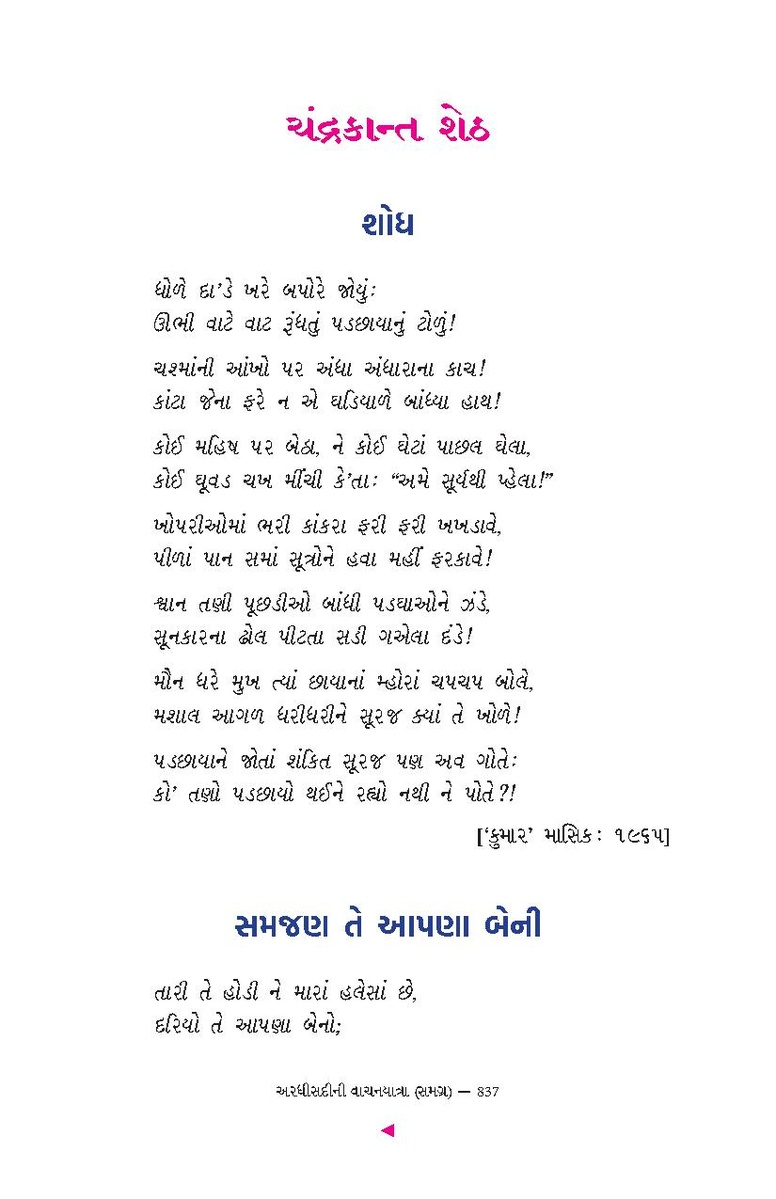 ચંદ્રકાન્ત શેઠ
શોધ
ધોળે દા’ડે ખરે બપોરે જોયું:
ઊભી વાટે વાટ રૂંધતું પડછાયાનું ટોળું!
ચશ્માંની આંખો પર અંધા અંધારાના કાચ!
કાંટા જેના ફરે ન એ ઘડિયાળે બાંધ્યા હાથ!
કોઈ મહિષ પર બેઠા, ને કોઈ ઘેટાં પાછલ ઘેલા,
કોઈ ઘૂવડ ચખ મીંચી કે’તા: “અમે સૂર્યથી પ્હેલા!”
ખોપરીઓમાં ભરી કાંકરા ફરી ફરી ખખડાવે,
પીળાં પાન સમાં સૂત્રોને હવા મહીં ફરકાવે!
શ્વાન તણી પૂછડીઓ બાંધી પડઘાઓને ઝંડે,
સૂનકારના ઢોલ પીટતા સડી ગએલા દંડે!
મૌન ધરે મુખ ત્યાં છાયાનાં મ્હોરાં ચપચપ બોલે,
મશાલ આગળ ધરીધરીને સૂરજ ક્યાં તે ખોળે!
પડછાયાને જોતાં શંકિત સૂરજ પણ અવ ગોતે:
કો’ તણો પડછાયો થઈને રહ્યો નથી ને પોતે?!
[‘કુમાર’ માસિક: ૧૯૬૫]
સમજણ તે આપણા બેની
તારી તે હોડી ને મારાં હલેસાં છે,
દરિયો તે આપણા બેનો;
અરધીસદીની વાચનયાત્રા (સમગ્ર) — 837